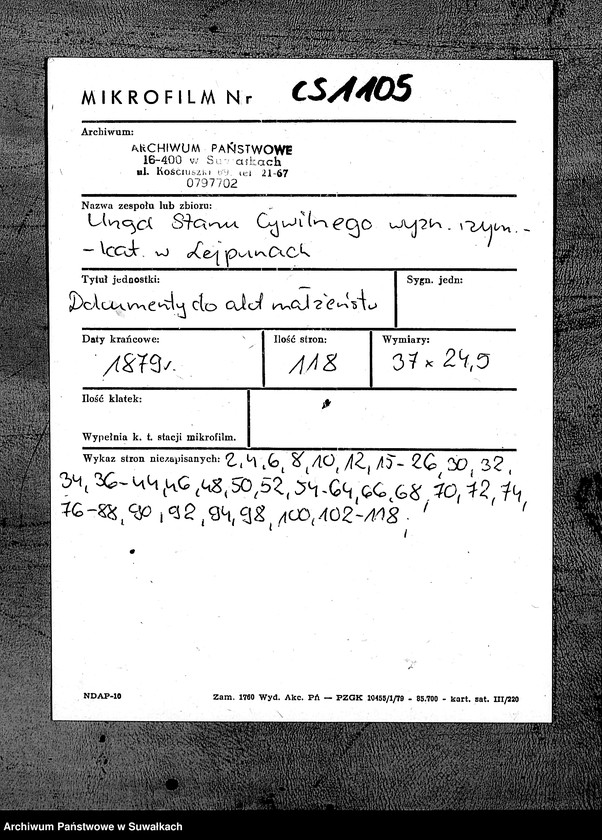 MIKROFILM Nr CS1105
Archiwum:
ARCHIWUM PAŃSTWOWE
16-400 w Suwałkach
ul. Kościuszki 69, tel 21-67
0797702
Nazwa zespołu lub zbioru:
Urząd Stanu Cywilnego wyzn. rzym.-
-kat. w Lejpunach
Tytuł jednostki:
Sygn. jedn:
Dokumenty do akt małżeństw
Daty krańcowe:
Ilość stron:
Wymiary:
1879r.
118
37 x 24,5
Ilość klatek:
Wypełnia k. t. stacji mikrofilm.
Wykaz stron niezapisanych: 2, 4, 6, 8, 10, 12, 15-26, 30, 32,
34, 36-44, 46, 48, 50, 52, 54-64, 66, 68, 70, 72, 74,
76-88, 90, 92, 94, 98, 100, 102-118.
NDAP-10
Zam. 1760 Wyd. Akc. Pń — PZGK 10455/1/79 - 85.700 - kart. sat. III/220
Archiwum Państwowe w Suwałkach